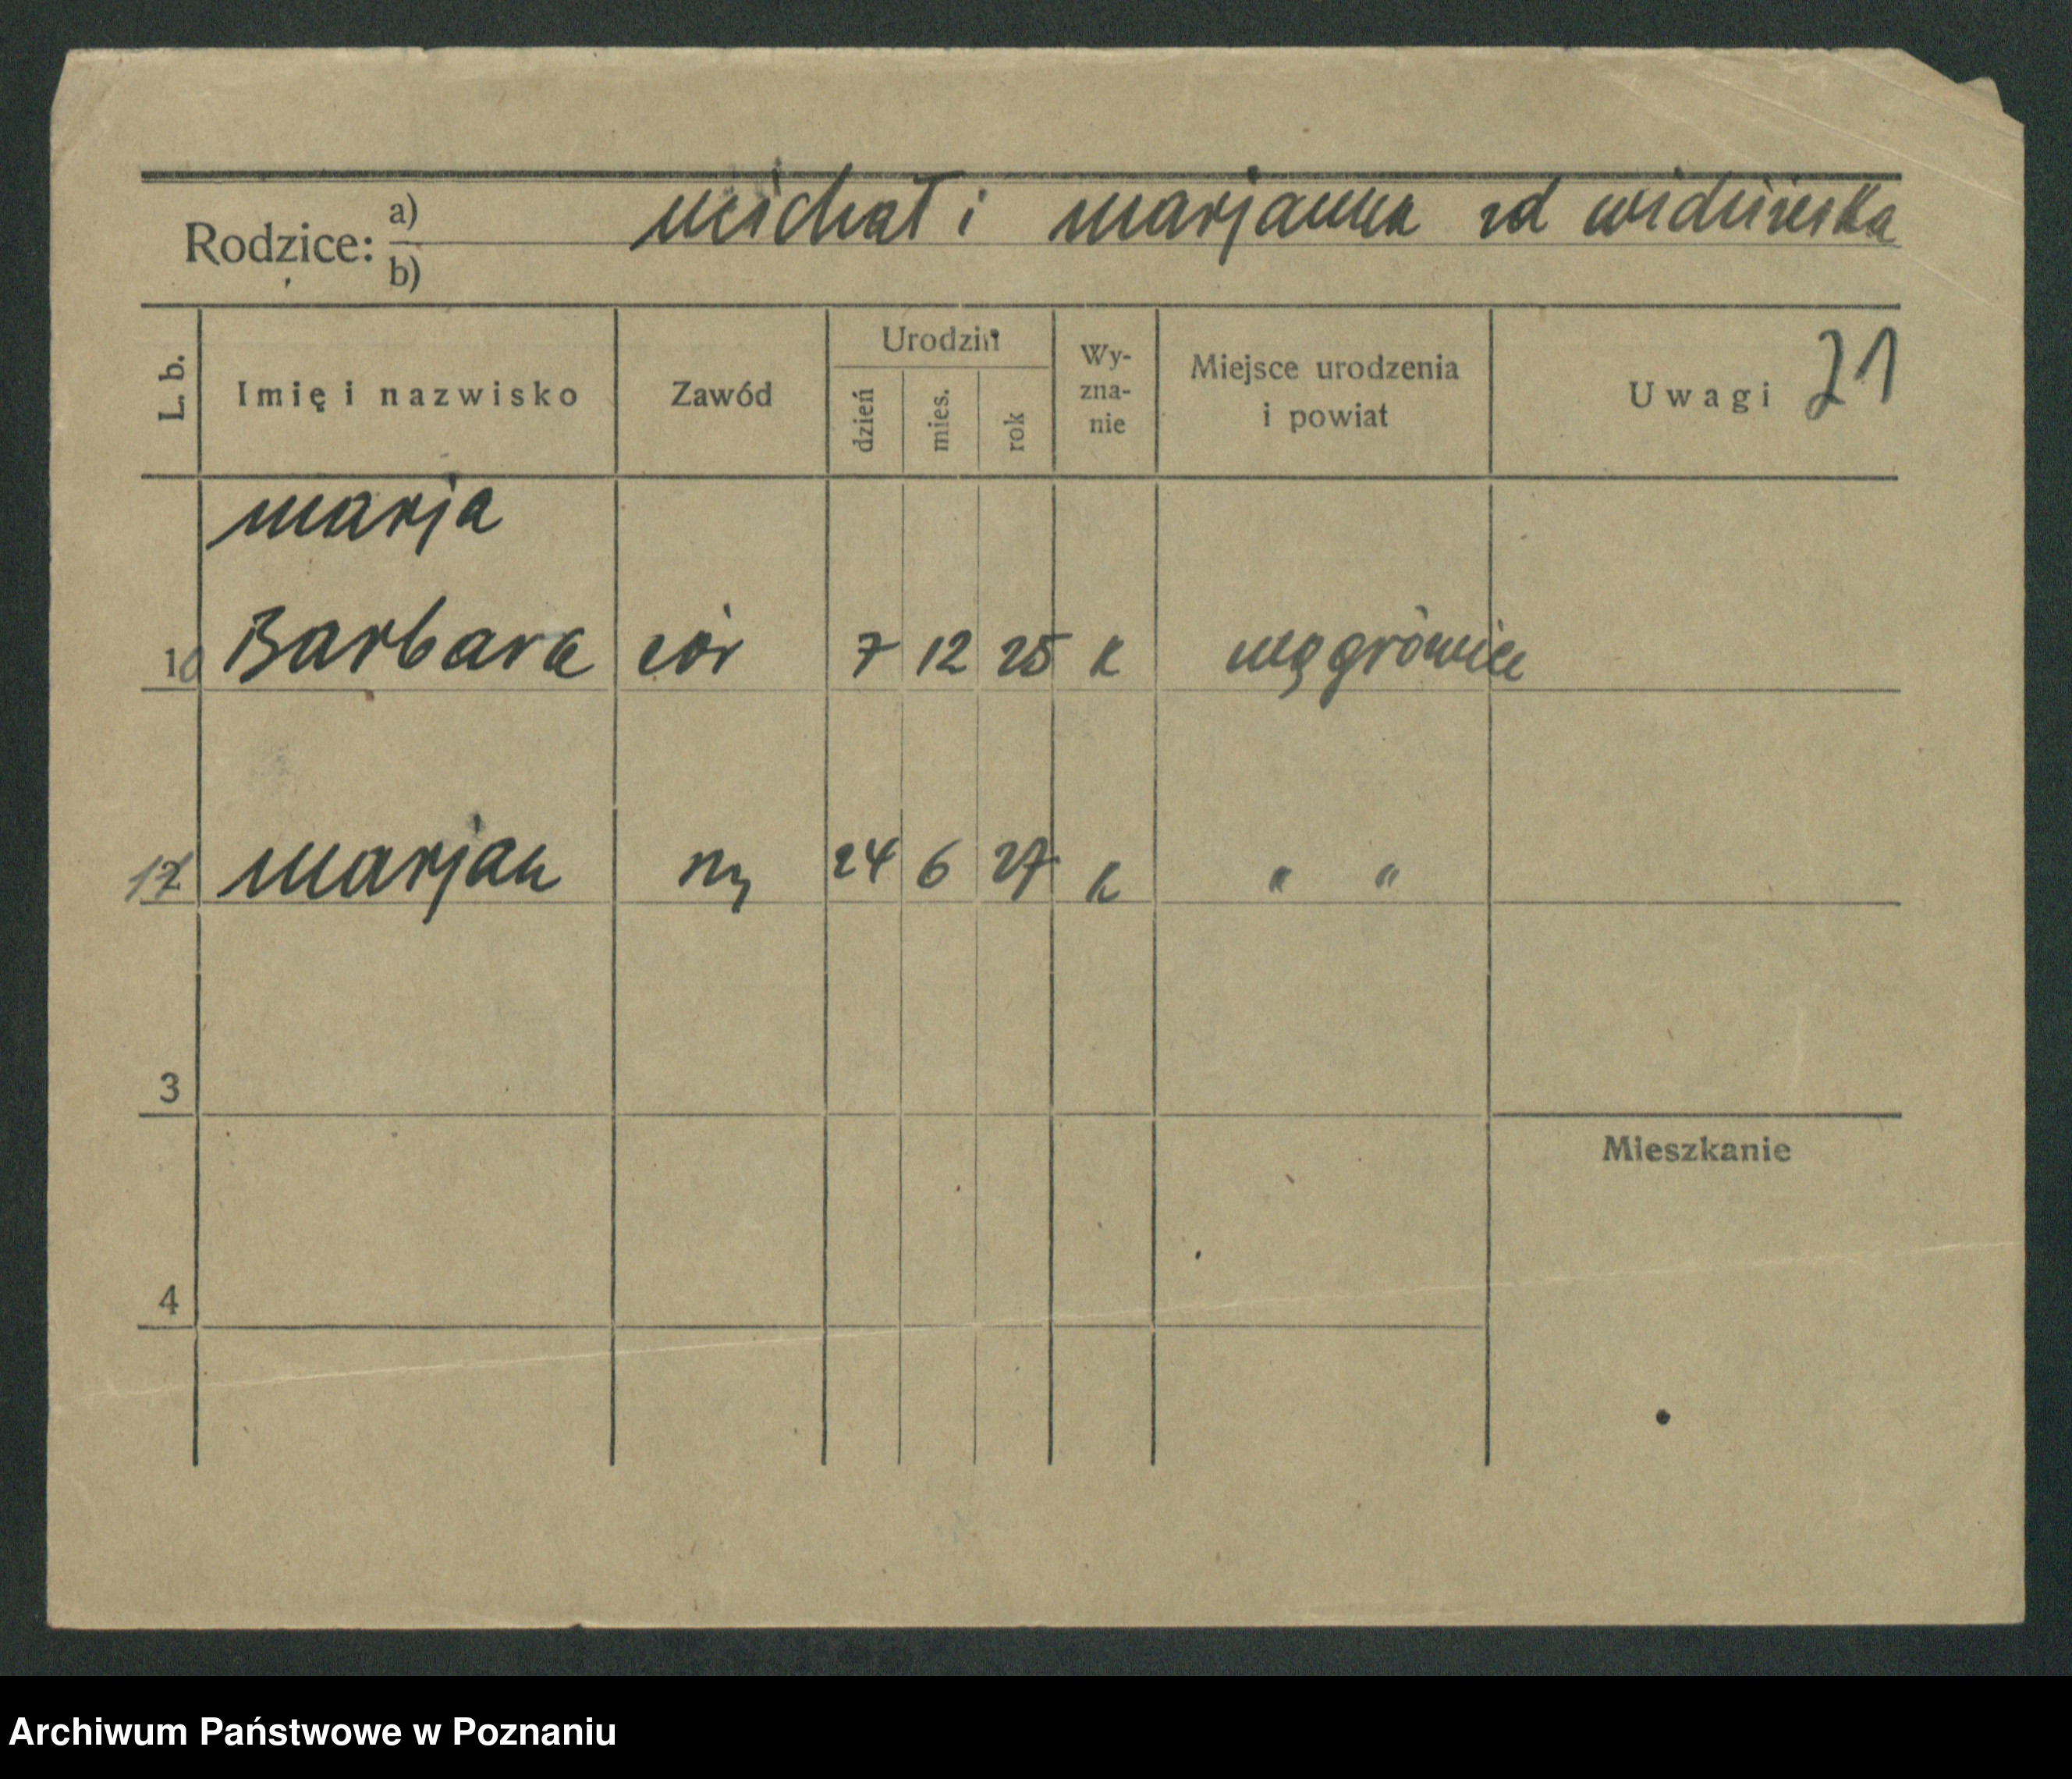 Rodzice: a) Michał i Marjanna zd
b)
L. b. Imię i nazwisko Zawód Urodzin dzień mies. rok Wy-zna-nie Miejsce urodzenia i powiat Uwagi 21
Marja
10 Barbara cór 7 12 25 k Wągrówiec
12 Marjan 24 6 27 k " "
3
Mieszkanie
4
Archiwum Państwowe w Poznaniu